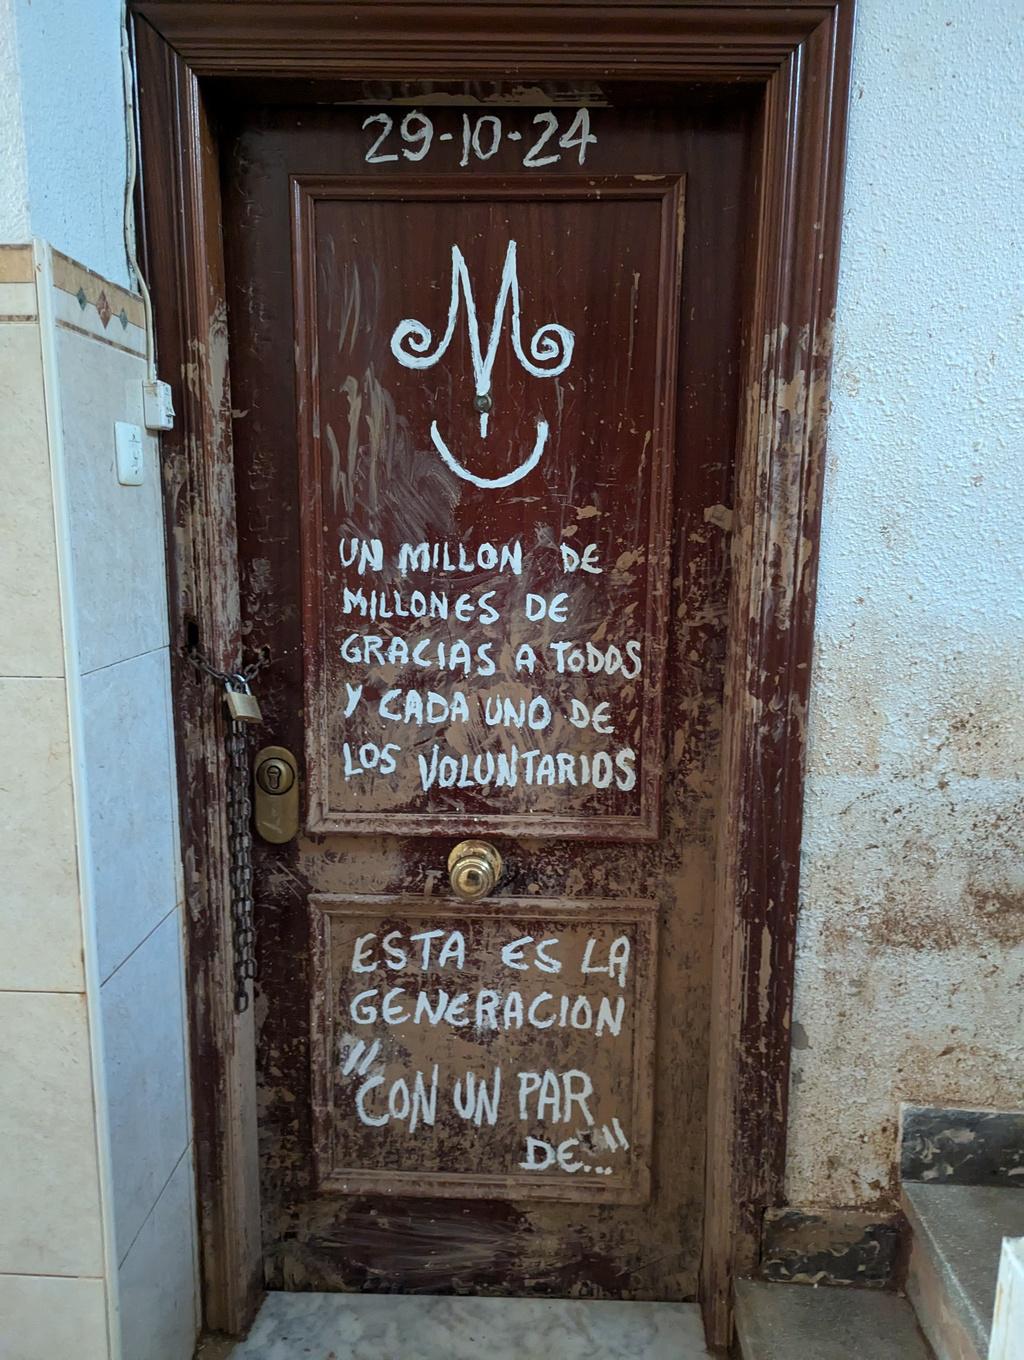 29-10-24
UN MILLON DE
MILLONES DE
GRACIAS A TODOS
Y CADA UNO DE
LOS VOLUNTARIOS
ESTA ES LA
GENERACION
"CON UN PAR
DE..."